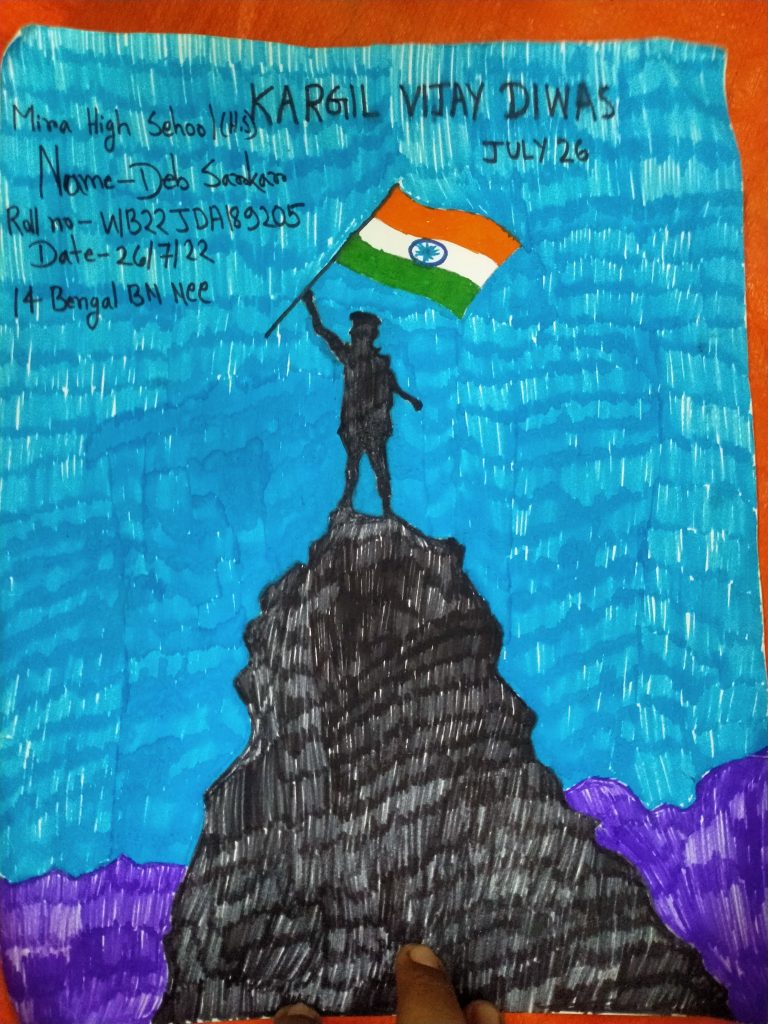 KARGIL VIJAY DIWAS
JULY 26
Mirra High School (H.S)
Name-Deb Sarkar
Roll no-WB22JDA189205
Date-26/7/22
14 Bengal BN NCC